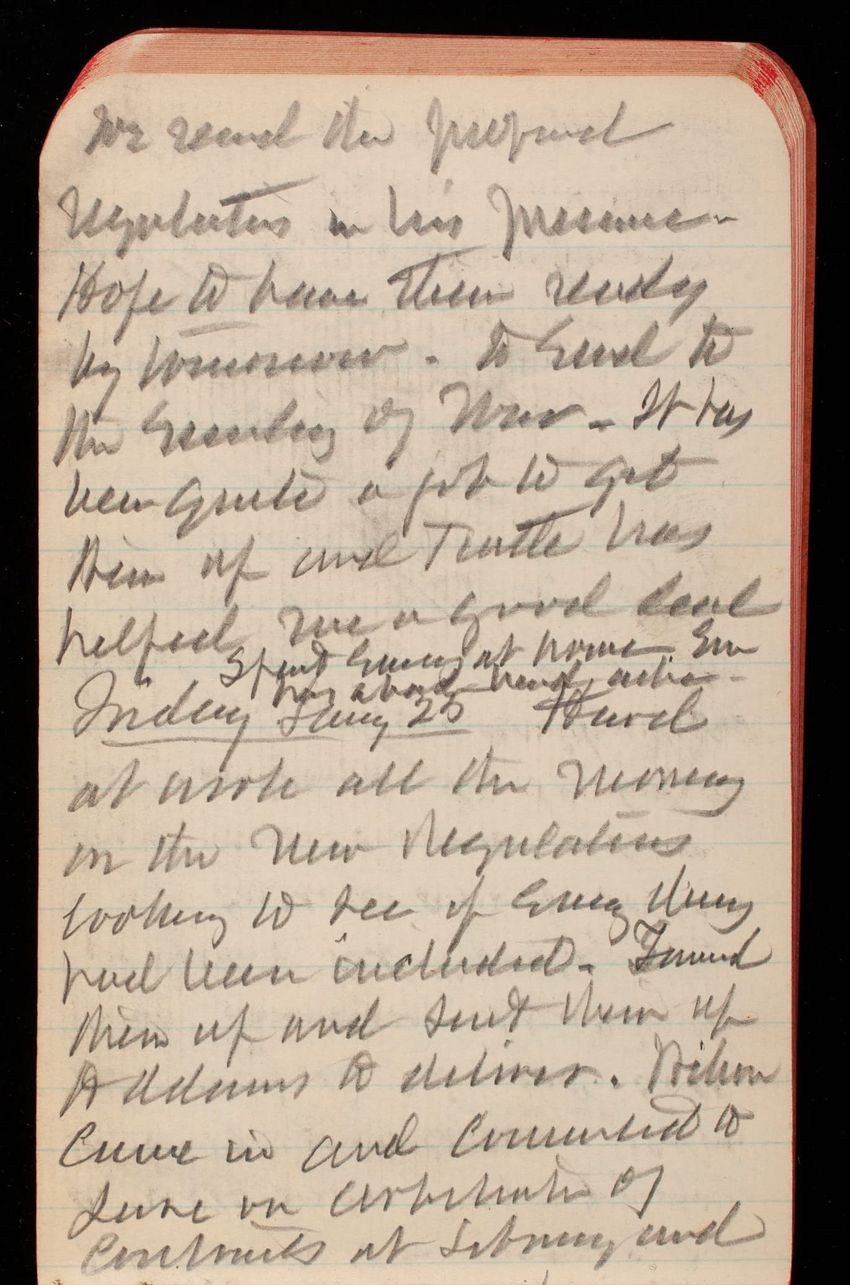 We read the proposed
regulations in his presence -
Hope to have them ready
by tomorrow - to send to
the Secretary of War - It has
been quite a job to get
them up and Tuttle has
helped me a good deal
Spent Evening at home. Em
has a bad head ache -
Friday Jany 25 Hard
at work all the morning
on the New Regulations
looking to see if Every thing
had been included -
them up and sent them up
to deliver.
Came in and Consented to
serve on arbitration of
Contracts at Library and